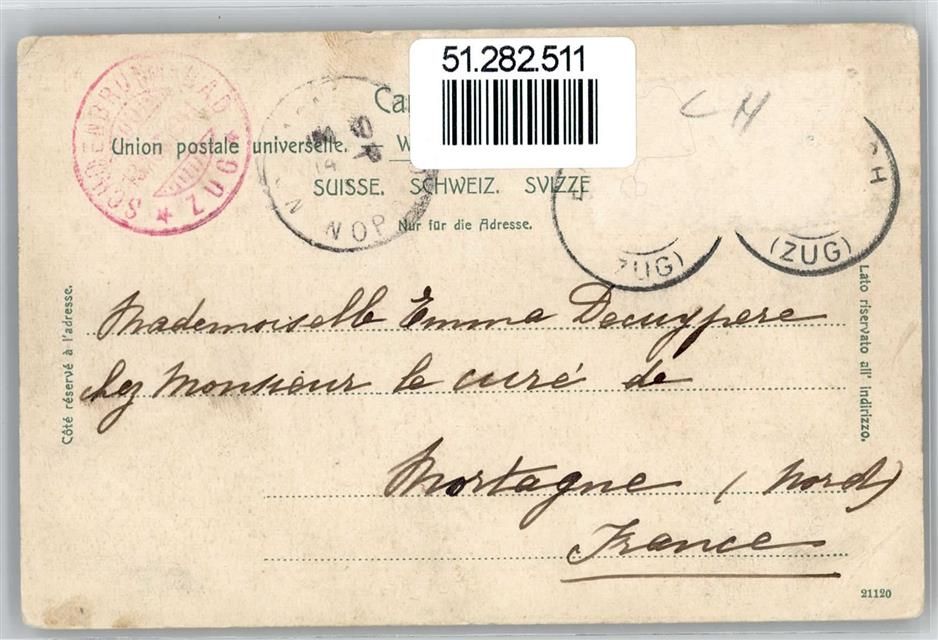 51.282.511
SCHÖNBRUNN BAD
★ ZUG ★
Union postale universelle.
SUISSE. SCHWEIZ. SVIZZE
Nur für die Adresse.
NORD
(ZUG)
(ZUG)
CH
Côté réservé à l'adresse.
Lato riservato all' indirizzo.
Mademoiselle Emma Decuypere
chez Monsieur le curé de
Mortagne (Nord)
France
21120